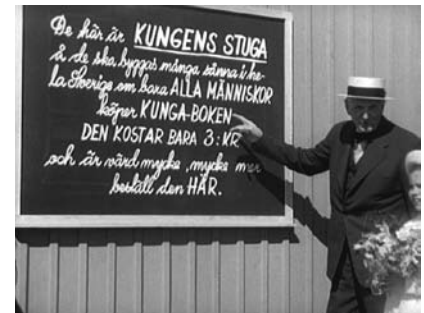 De här är KUNGENS STUGA
å de ska byggas många sånna i he-
la Sverige om bara ALLA MÄNNISKOR
köper KUNGA-BOKEN
DEN KOSTAR BARA 3:KR
och är värd mycke, mycke mer
beställ den HÄR.